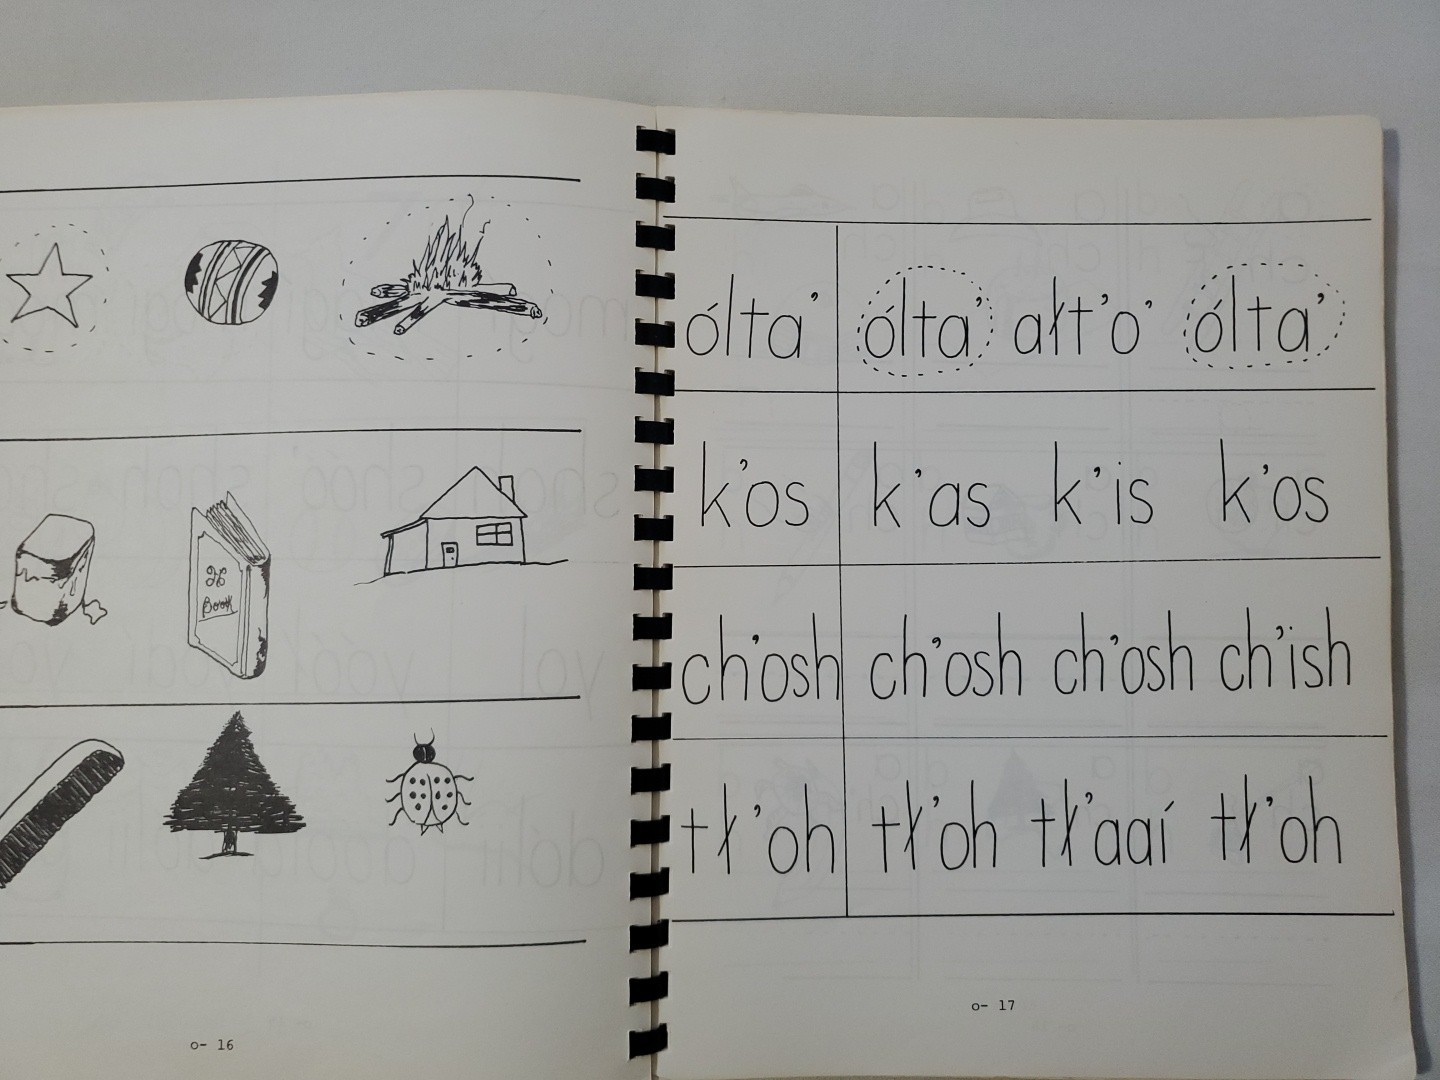 Book
o- 16
ólta' ólta' ałt'o' ólta'
k'os k'as k'is k'os
ch'osh ch'osh ch'osh ch'ish
tł'oh tł'oh tł'aaí tł'oh
o- 17